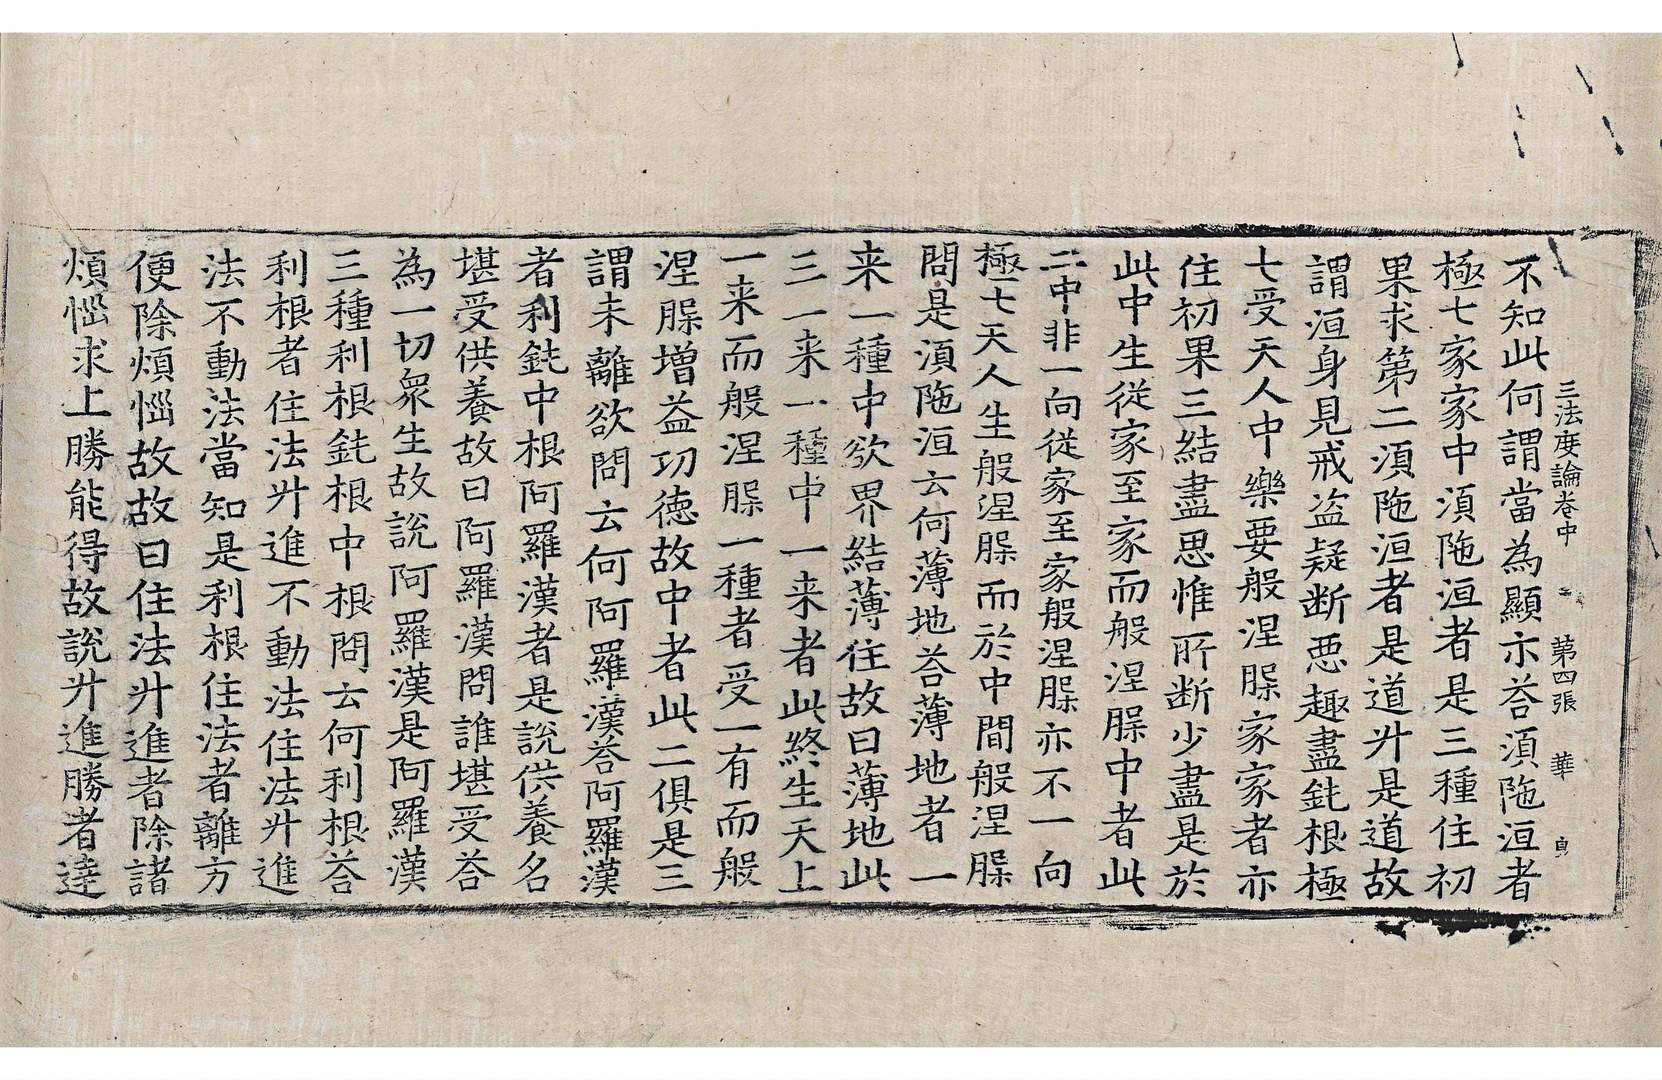 三法度論卷中 第四張 華
不知此何謂當為顯示荅湏陁洹者
極七家家中湏陁洹者是三種住初
果求第二湏陁洹者是道升是道故
謂洹身見戒盜疑断惡趣盡鈍根極
七受天人中樂要般涅槃家家者亦
住初果三結盡思惟所断少盡是於
此中生從家至家而般涅槃中者此
二中非一向從家至家般涅槃亦不一向
極七天人生般涅槃而於中間般涅槃
問是湏陁洹云何薄地荅薄地者一
来一種中欲界結薄往故曰薄地此
三一来一種中一来者此終生天上
一来而般涅槃一種者受一有而般
涅槃增益功德故中者此二俱是三
謂未離欲問云何阿羅漢荅阿羅漢
者利鈍中根阿羅漢者是說供養名
堪受供養故曰阿羅漢問誰堪受荅
為一切衆生故說阿羅漢是阿羅漢
三種利根鈍根中根問云何利根荅
利根者住法升進不動法住法升進
法不動法當知是利根住法者離方
便除煩惱故故曰住法升進者除諸
煩惱求上勝能得故說升進勝者達